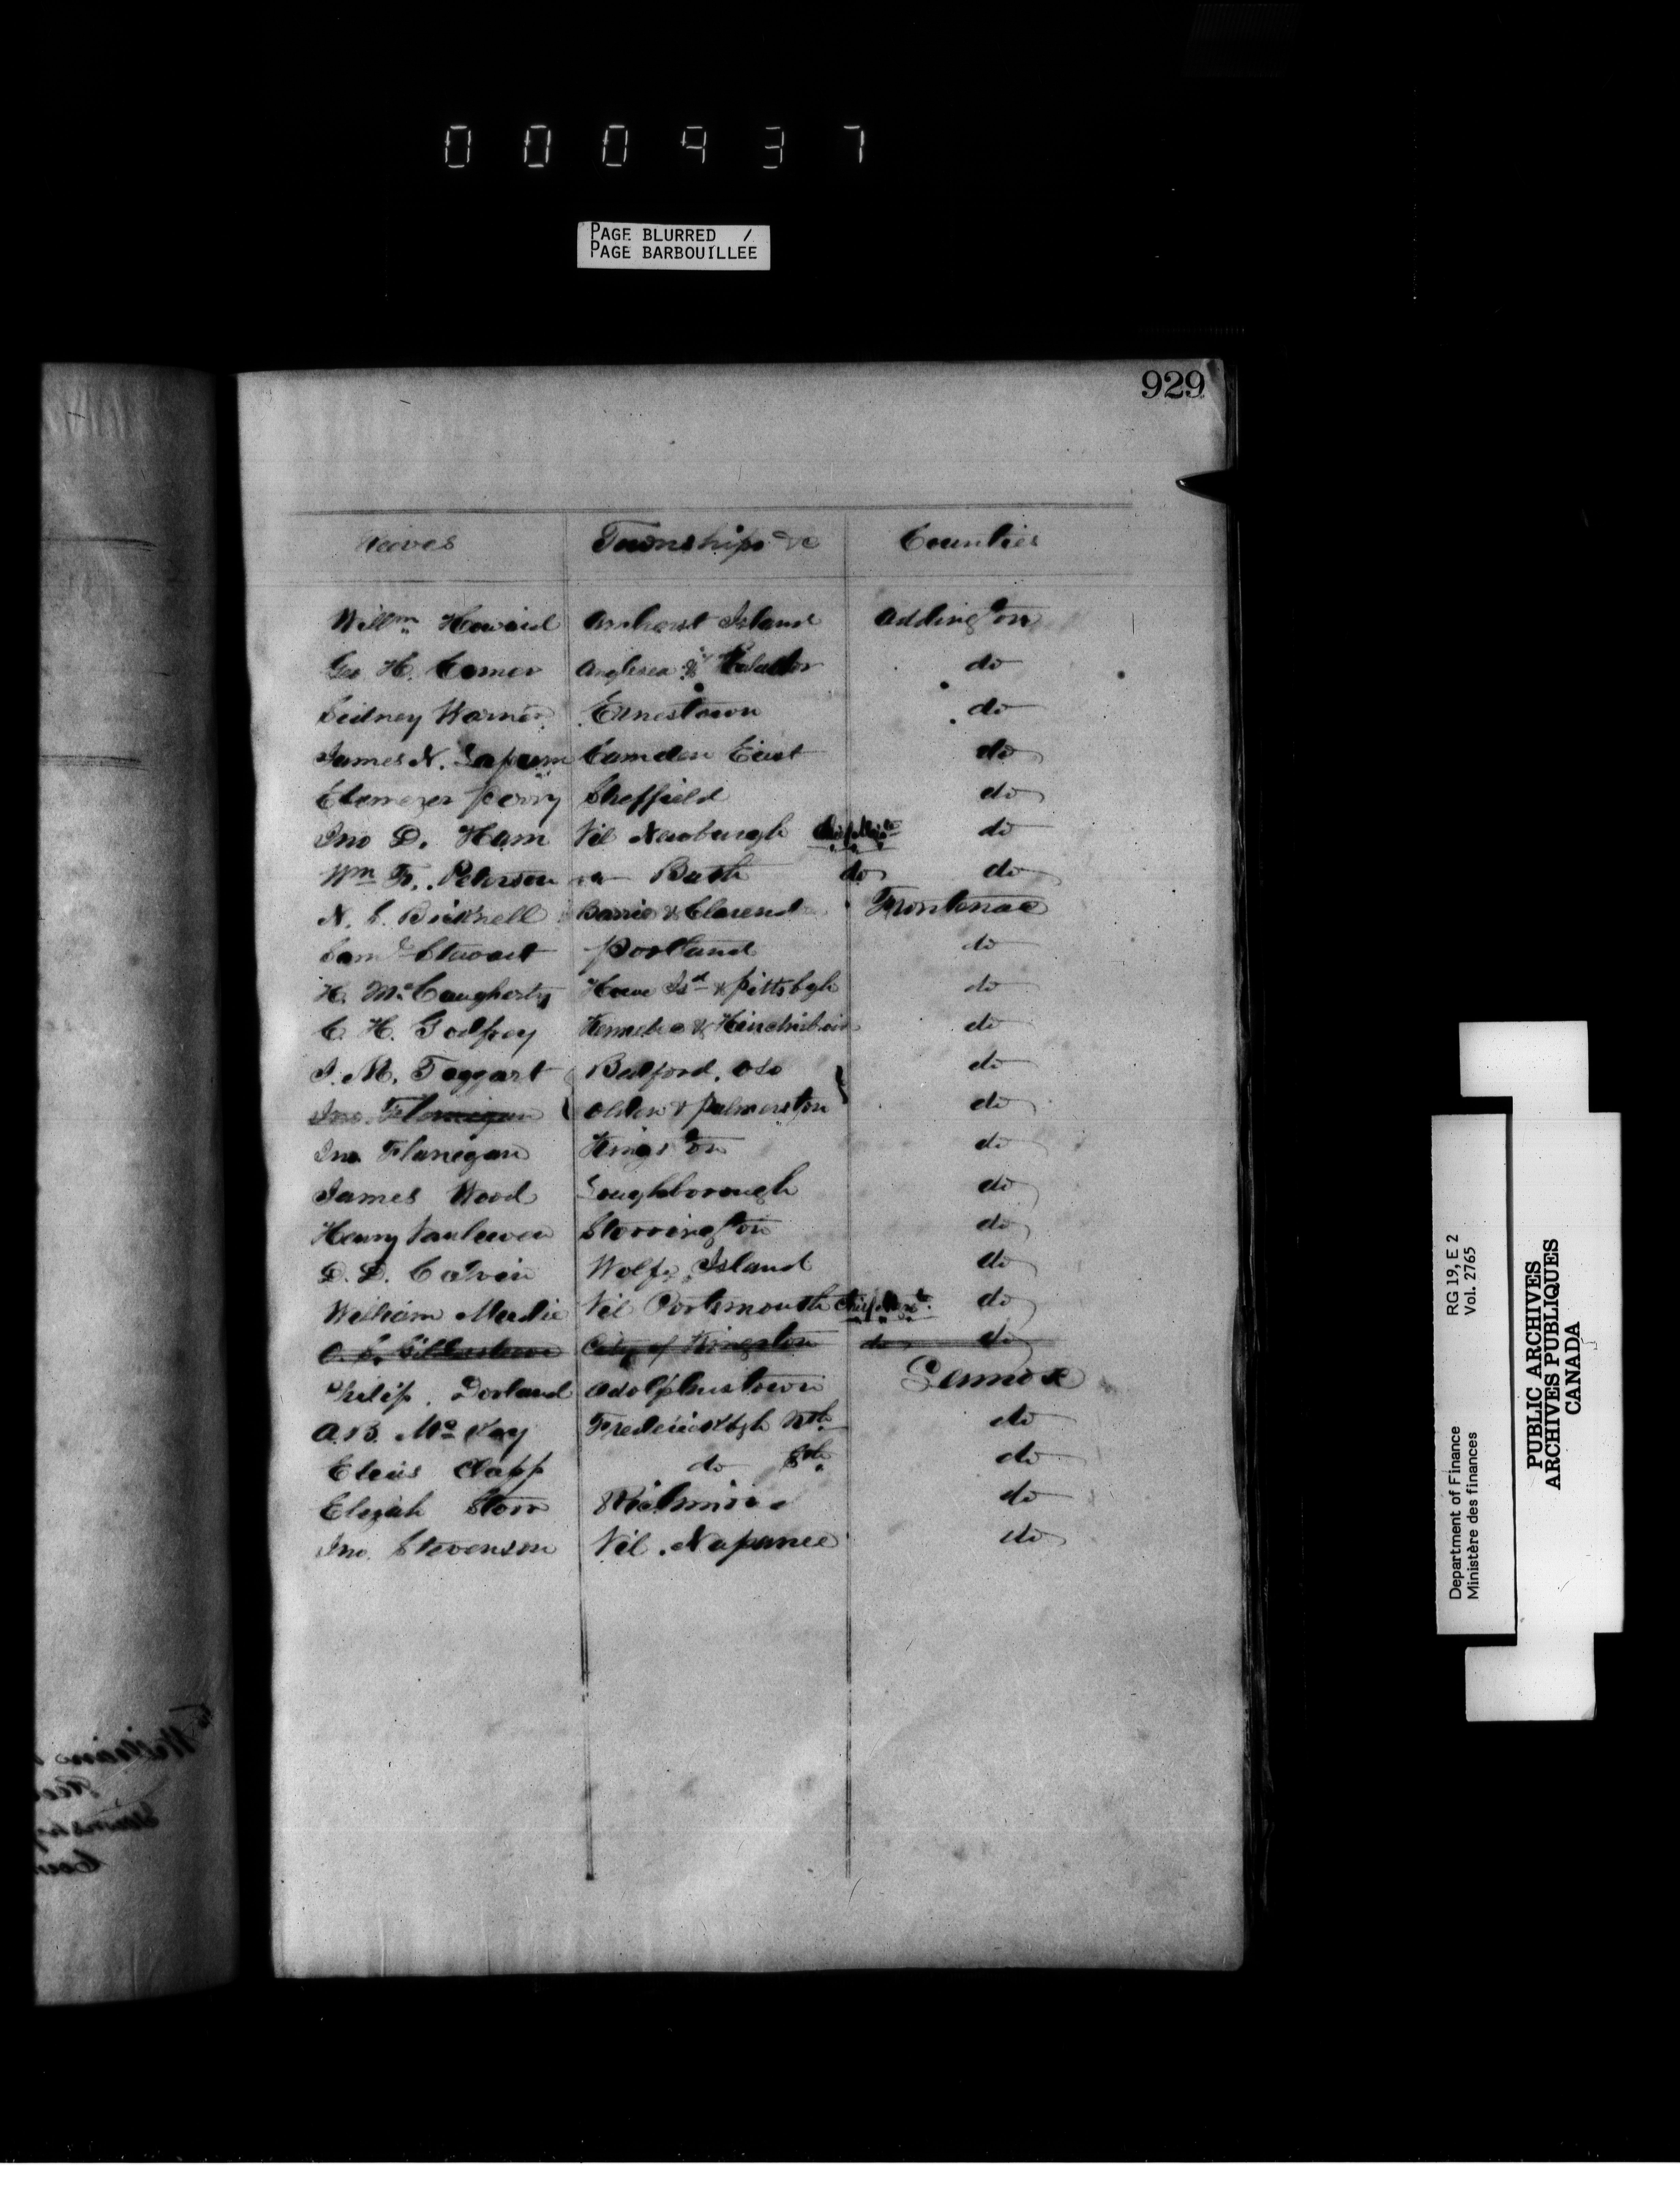 000937
PAGE BLURRED /
PAGE BARBOUILLEE
929
Reeves Townships &c Counties
Willm Howard Amherst Island Addington
Geo H. Comer Anglesea & Kaladar do
Sidney Warner Ernestown do
James N. Lapum Camden East do
Ebenezer Perry Sheffield do
Jno D. Ham Vil Newburgh do
Wm F. Peterson Bath do do
N. S. Bicknell Barrie & Clarend Frontenac
Saml Stewart Portland do
H. McCaugherty Howe Isd & Pittsbgh do
C. H. Godfrey Kennebec & Hinchinbrin do
J. M. Taggart Bedford, Oso do
Jno Flanigan Olden & Palmerston do
Jno Flanigan Kingston do
James Wood Loughborough do
Henry Vanluven Storrington do
D. D. Calvin Wolfe Island do
William Vil Portsmouth do
City of Kingston do do
Philip Dorland Adolphustown Lennox
A.B. McKay Fredericksbgh Nth do
Elias Clapp do Sth do
Elijah Storr Richmond do
Jno. Stevenson Vil. Napanee do
Department of Finance RG 19, E 2
Ministère des finances Vol. 2765
PUBLIC ARCHIVES
ARCHIVES PUBLIQUES
CANADA